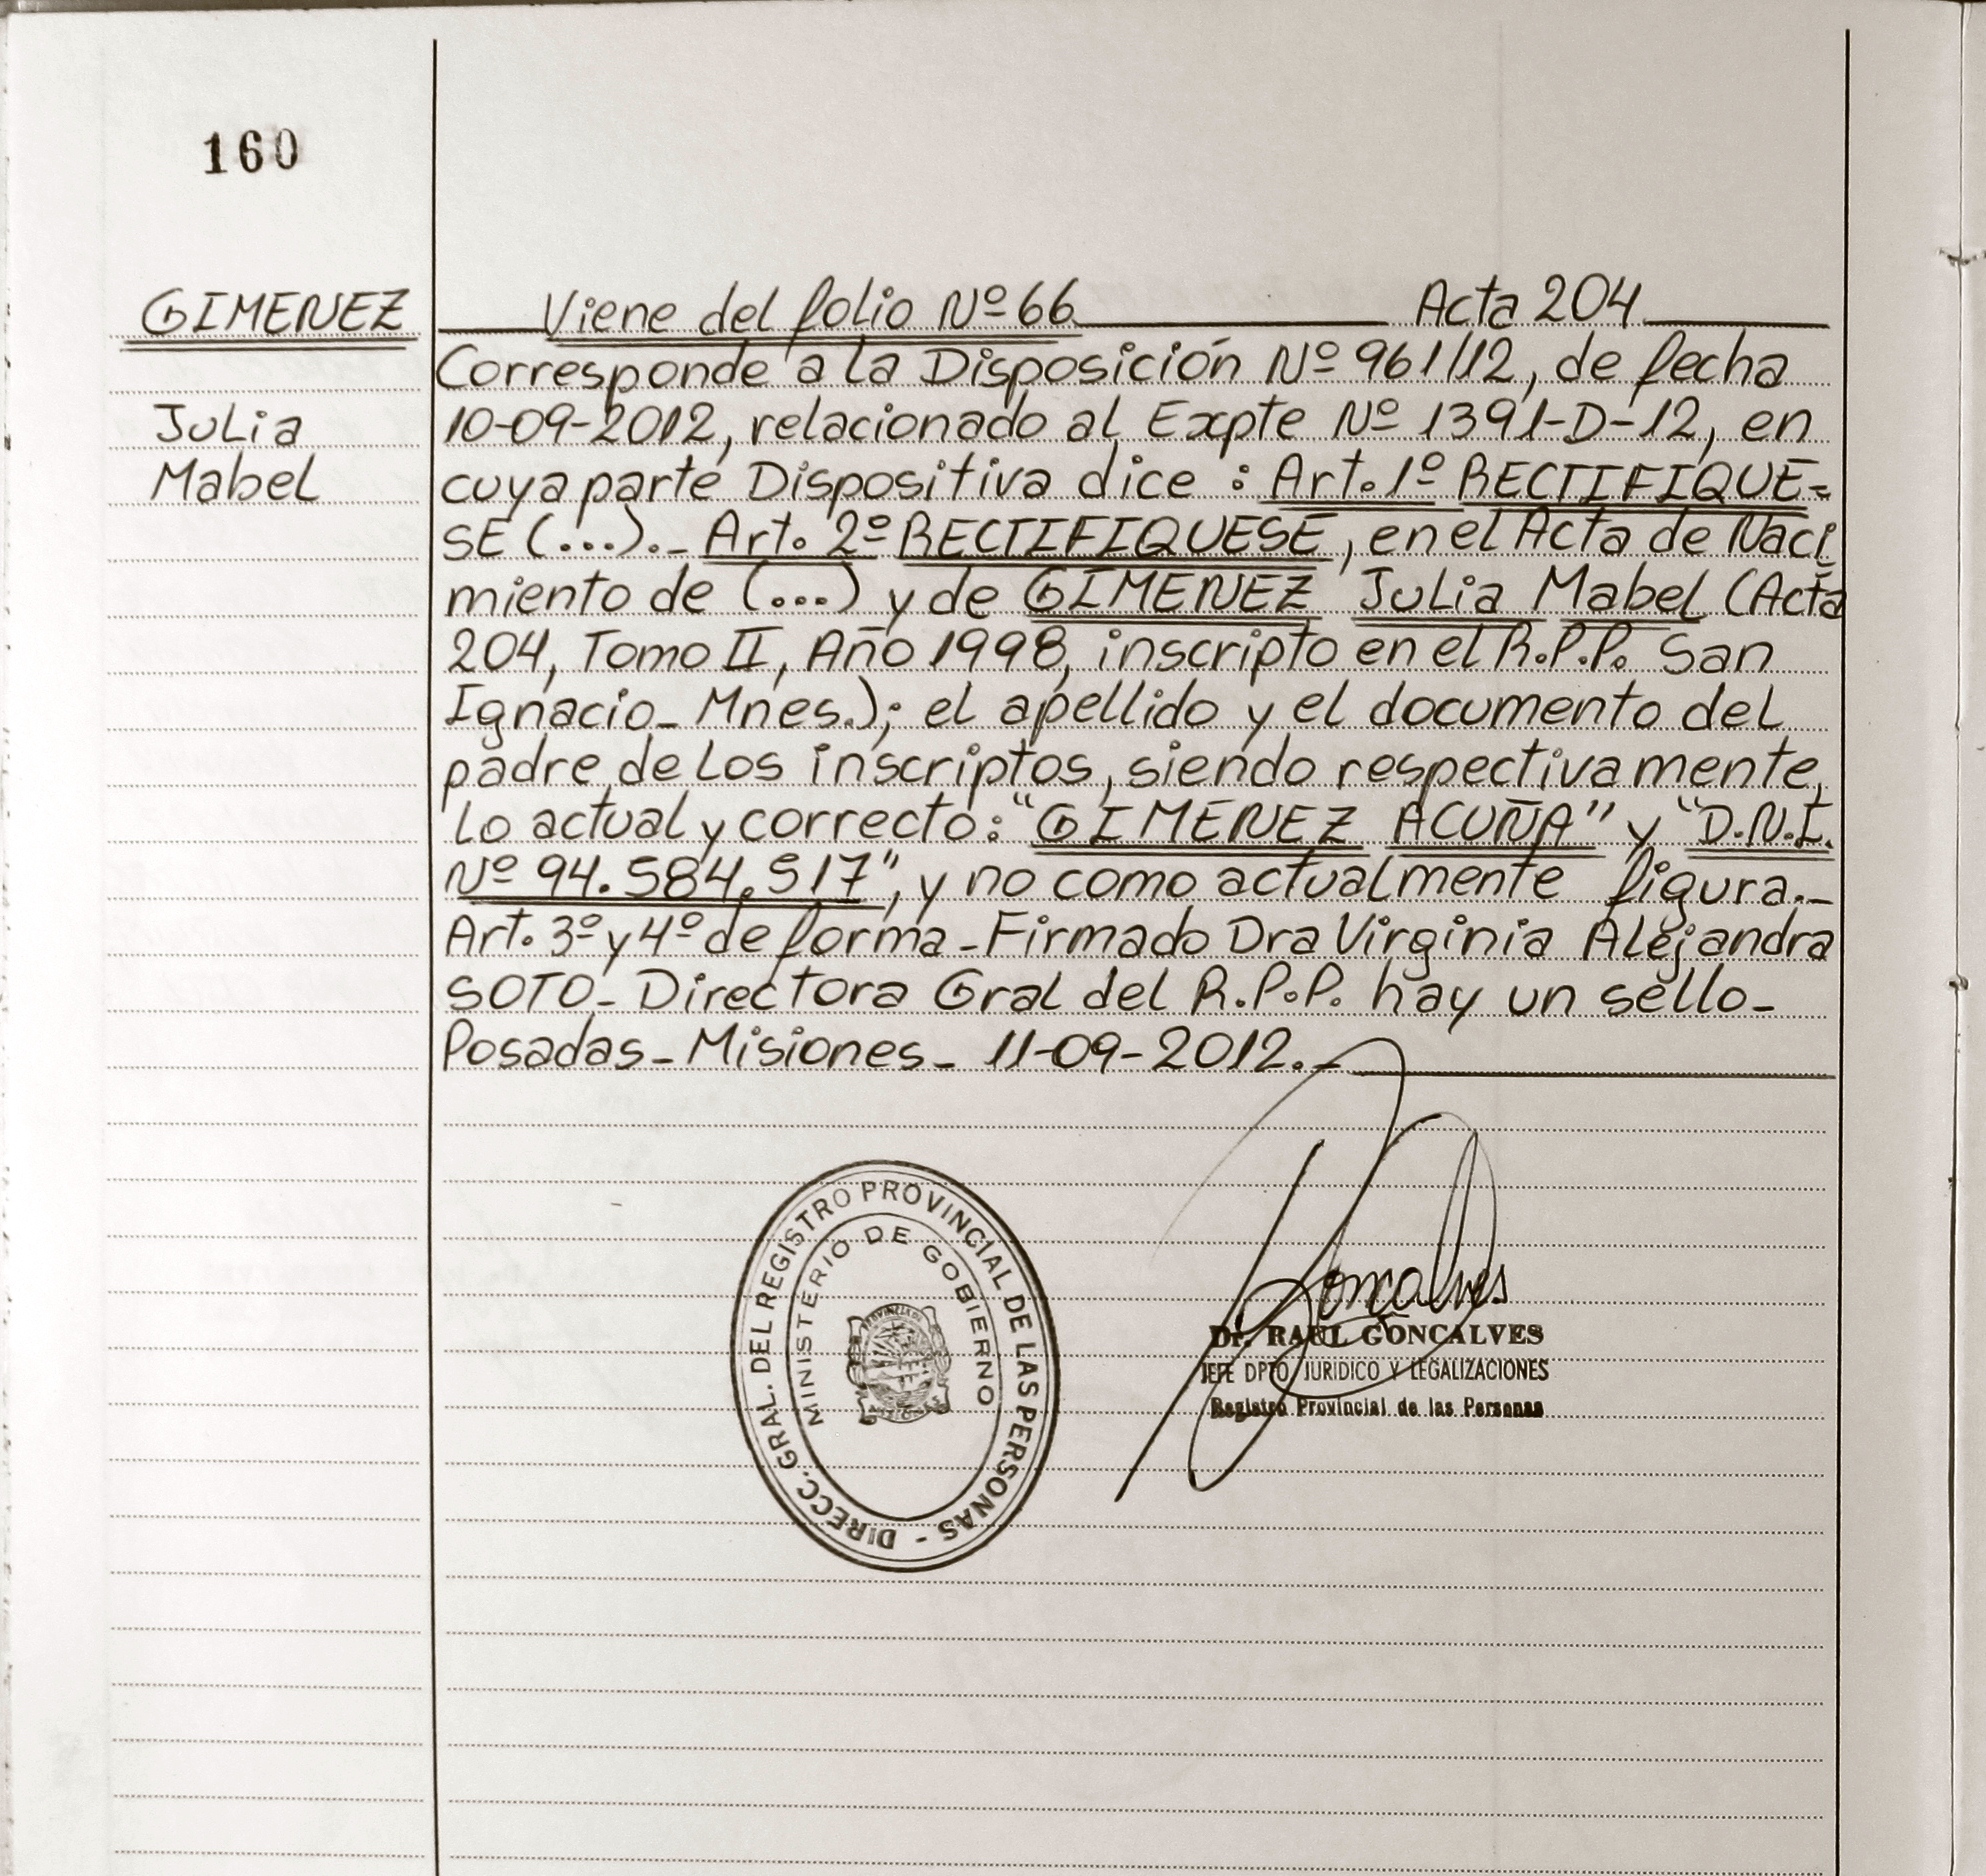 160
GIMENEZ
Julia
Mabel
Viene del folio Nº 66 Acta 204
Corresponde a la Disposición Nº 961/12, de fecha
10-09-2012, relacionado al Expte Nº 1391-D-12, en
cuya parte Dispositiva dice : Art. 1º RECTIFIQUE-
SE (...).- Art. 2º RECTIFIQUESE, en el Acta de Naci
miento de (...) y de GIMENEZ Julia Mabel (Acta
204, Tomo II, Año 1998, inscripto en el R.P.P. San
Ignacio_ Mnes.); el apellido y el documento del
padre de los inscriptos, siendo respectivamente,
lo actual y correcto: "GIMENEZ ACUÑA" y "D.N.I.
Nº 94.584.517", y no como actualmente figura._
Art. 3º y 4º de forma - Firmado Dra Virginia Alejandra
SOTO_ Directora Gral del R.P.P. hay un sello_
Posadas_ Misiones_ 11-09-2012._
DIRECC. GRAL. DEL REGISTRO PROVINCIAL DE LAS PERSONAS -
MINISTERIO DE GOBIERNO
PROVINCIA DE
MISIONES
Goncalves
Dr. RAUL GONCALVES
JEFE DPTO JURIDICO Y LEGALIZACIONES
Registro Provincial de las Personas